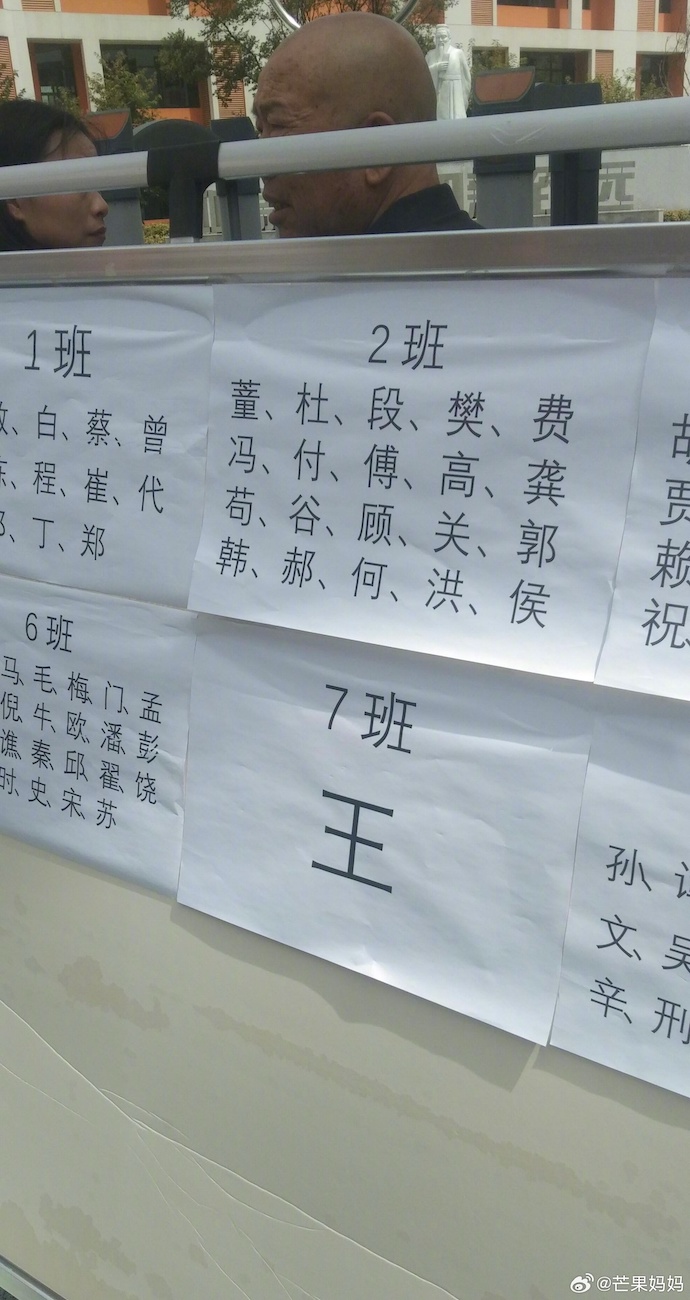 1班
白、蔡、曾
程、崔、代
丁、郑
2班
董、杜、段、樊、费
冯、付、傅、高、龚
苟、谷、顾、关、郭
韩、郝、何、洪、侯
胡
贾
赖
祝、
6班
马、毛、梅、门、孟
倪、牛、欧、潘、彭
谯、秦、邱、翟、饶
时、史、宋、苏
7班
王
孙、
文、吴
辛、刑
远
@芒果妈妈